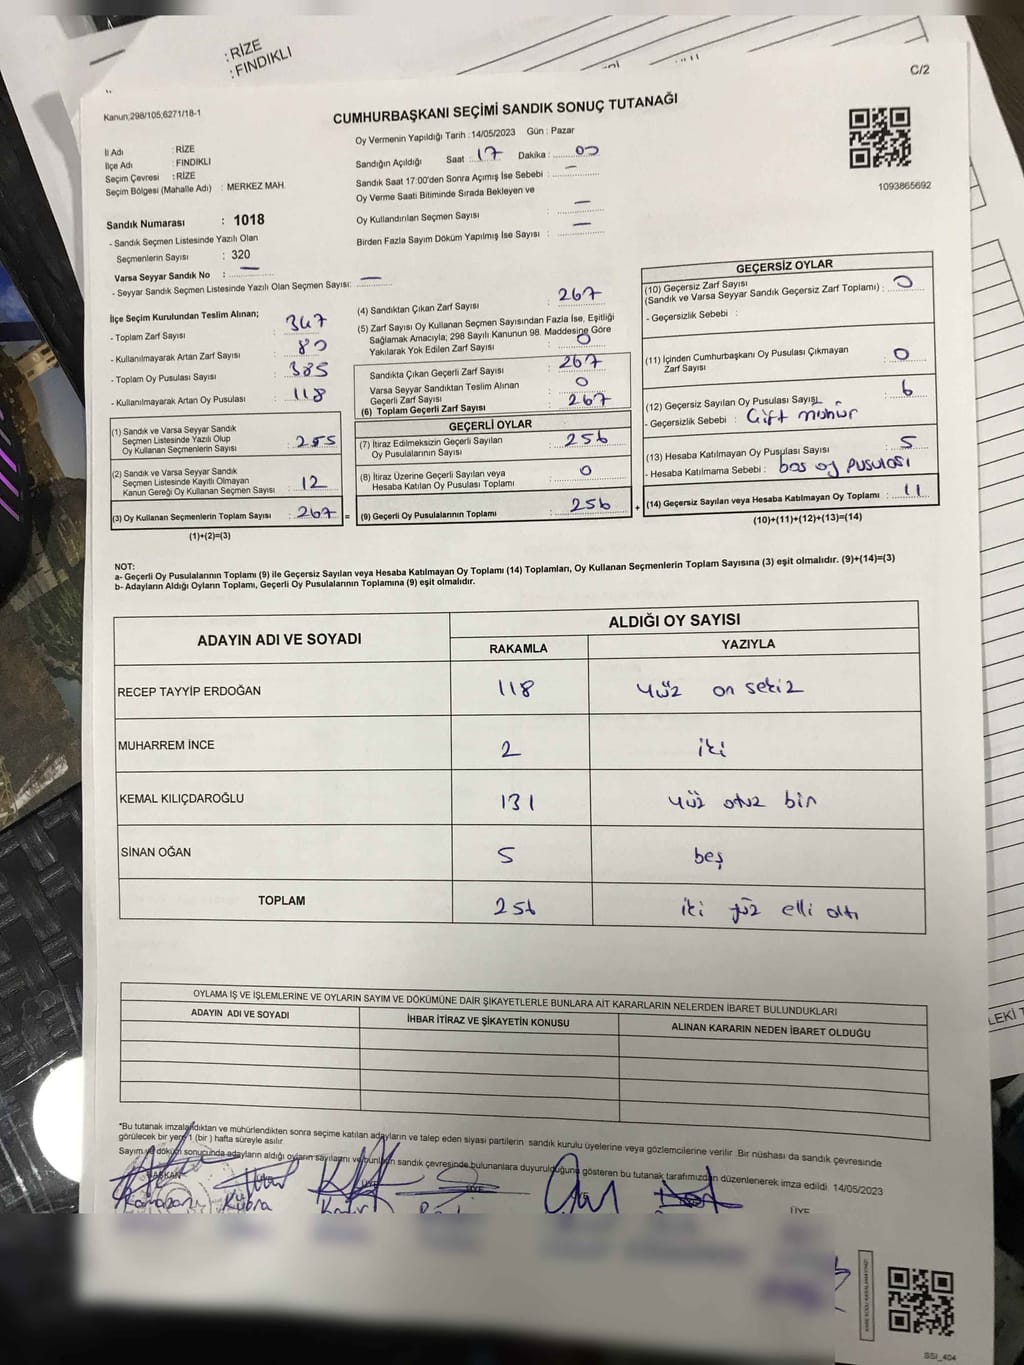 :RİZE
:FINDIKLI
C/2
Kanun;298/105,6271/18-1
CUMHURBAŞKANI SEÇİMİ SANDIK SONUÇ TUTANAĞI
İl Adı : RİZE
İlçe Adı : FINDIKLI
Seçim Çevresi : RİZE
Seçim Bölgesi (Mahalle Adı) : MERKEZ MAH.
Oy Vermenin Yapıldığı Tarih : 14/05/2023 Gün : Pazar
Sandığın Açıldığı Saat : 17 Dakika : 00
Sandık Saat 17:00'den Sonra Açımış İse Sebebi : —
Oy Verme Saati Bitiminde Sırada Bekleyen ve
Oy Kullandırılan Seçmen Sayısı : —
Birden Fazla Sayım Döküm Yapılmış İse Sayısı : —
1093865692
Sandık Numarası : 1018
- Sandık Seçmen Listesinde Yazılı Olan
Seçmenlerin Sayısı : 320
Varsa Seyyar Sandık No : —
- Seyyar Sandık Seçmen Listesinde Yazılı Olan Seçmen Sayısı: —
İlçe Seçim Kurulundan Teslim Alınan;
- Toplam Zarf Sayısı : 347
- Kullanılmayarak Artan Zarf Sayısı : 80
- Toplam Oy Pusulası Sayısı : 385
- Kullanılmayarak Artan Oy Pusulası : 118
(1) Sandık ve Varsa Seyyar Sandık
Seçmen Listesinde Yazılı Olup
Oy Kullanan Seçmenlerin Sayısı : 255
(2) Sandık ve Varsa Seyyar Sandık
Seçmen Listesinde Kayıtlı Olmayan
Kanun Gereği Oy Kullanan Seçmen Sayısı : 12
(3) Oy Kullanan Seçmenlerin Toplam Sayısı : 267 =
(1)+(2)=(3)
(4) Sandıktan Çıkan Zarf Sayısı : 267
(5) Zarf Sayısı Oy Kullanan Seçmen Sayısından Fazla İse, Eşitliği
Sağlamak Amacıyla; 298 Sayılı Kanunun 98. Maddesine Göre
Yakılarak Yok Edilen Zarf Sayısı : 0
Sandıkta Çıkan Geçerli Zarf Sayısı : 267
Varsa Seyyar Sandıktan Teslim Alınan
Geçerli Zarf Sayısı : 0
(6) Toplam Geçerli Zarf Sayısı : 267
GEÇERLİ OYLAR
(7) İtiraz Edilmeksizin Geçerli Sayılan
Oy Pusulalarının Sayısı : 256
(8) İtiraz Üzerine Geçerli Sayılan veya
Hesaba Katılan Oy Pusulası Toplamı : 0
(9) Geçerli Oy Pusulalarının Toplamı : 256 +
GEÇERSİZ OYLAR
(10) Geçersiz Zarf Sayısı
(Sandık ve Varsa Seyyar Sandık Geçersiz Zarf Toplamı) : 0
- Geçersizlik Sebebi :
(11) İçinden Cumhurbaşkanı Oy Pusulası Çıkmayan
Zarf Sayısı : 0
(12) Geçersiz Sayılan Oy Pusulası Sayışı : 6
- Geçersizlik Sebebi : Çift mühür
(13) Hesaba Katılmayan Oy Pusulası Sayısı : 5
- Hesaba Katılmama Sebebi : boş oy pusulası
(14) Geçersiz Sayılan veya Hesaba Katılmayan Oy Toplamı : 11
(10)+(11)+(12)+(13)=(14)
NOT:
a- Geçerli Oy Pusulalarının Toplamı (9) ile Geçersiz Sayılan veya Hesaba Katılmayan Oy Toplamı (14) Toplamları, Oy Kullanan Seçmenlerin Toplam Sayısına (3) eşit olmalıdır. (9)+(14)=(3)
b- Adayların Aldığı Oyların Toplamı, Geçerli Oy Pusulalarının Toplamına (9) eşit olmalıdır.
ADAYIN ADI VE SOYADI
ALDIĞI OY SAYISI
RAKAMLA YAZIYLA
RECEP TAYYİP ERDOĞAN 118 yüz on sekiz
MUHARREM İNCE 2 iki
KEMAL KILIÇDAROĞLU 131 yüz otuz bir
SİNAN OĞAN 5 beş
TOPLAM 256 iki yüz elli altı
OYLAMA İŞ VE İŞLEMLERİNE VE OYLARIN SAYIM VE DÖKÜMÜNE DAİR ŞİKAYETLERLE BUNLARA AİT KARARLARIN NELERDEN İBARET BULUNDUKLARI
ADAYIN ADI VE SOYADI İHBAR İTİRAZ VE ŞİKAYETİN KONUSU ALINAN KARARIN NEDEN İBARET OLDUĞU
*Bu tutanak imzalandıktan ve mühürlendikten sonra seçime katılan adayların ve talep eden siyasi partilerin sandık kurulu üyelerine veya gözlemcilerine verilir .Bir nüshası da sandık çevresinde
görülecek bir yere 1 (bir ) hafta süreyle asılır.
Sayım ve döküm sonucunda adayların aldığı oyların sayılarını ve bunların sandık çevresinde bulunanlara duyurulduğunu gösteren bu tutanak tarafımızdan düzenlenerek imza edildi. 14/05/2023
BAŞKAN
ÜYE
ÜYE
Kübra
ÜYE
SSI_404
LEKİ T